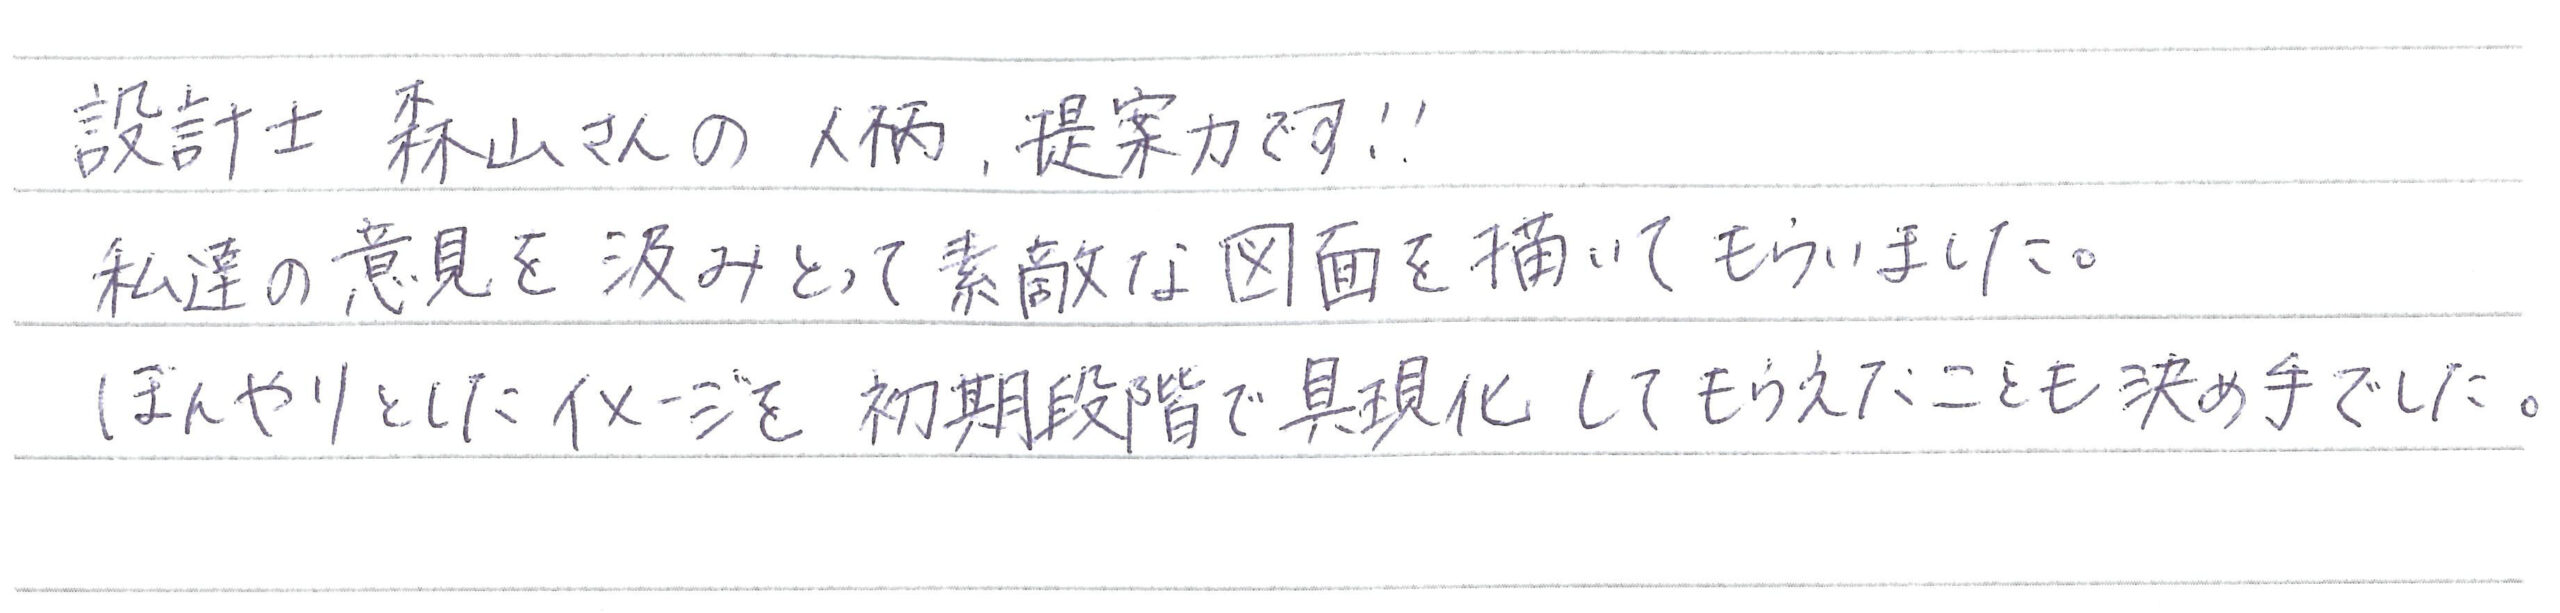 設計士 森山さんの 人柄、提案力です!!
私達の意見を 汲みとって素敵な図面を描いて もらいました。
ぼんやりとしたイメージを 初期段階で具現化 してもらえたことも決め手でした。